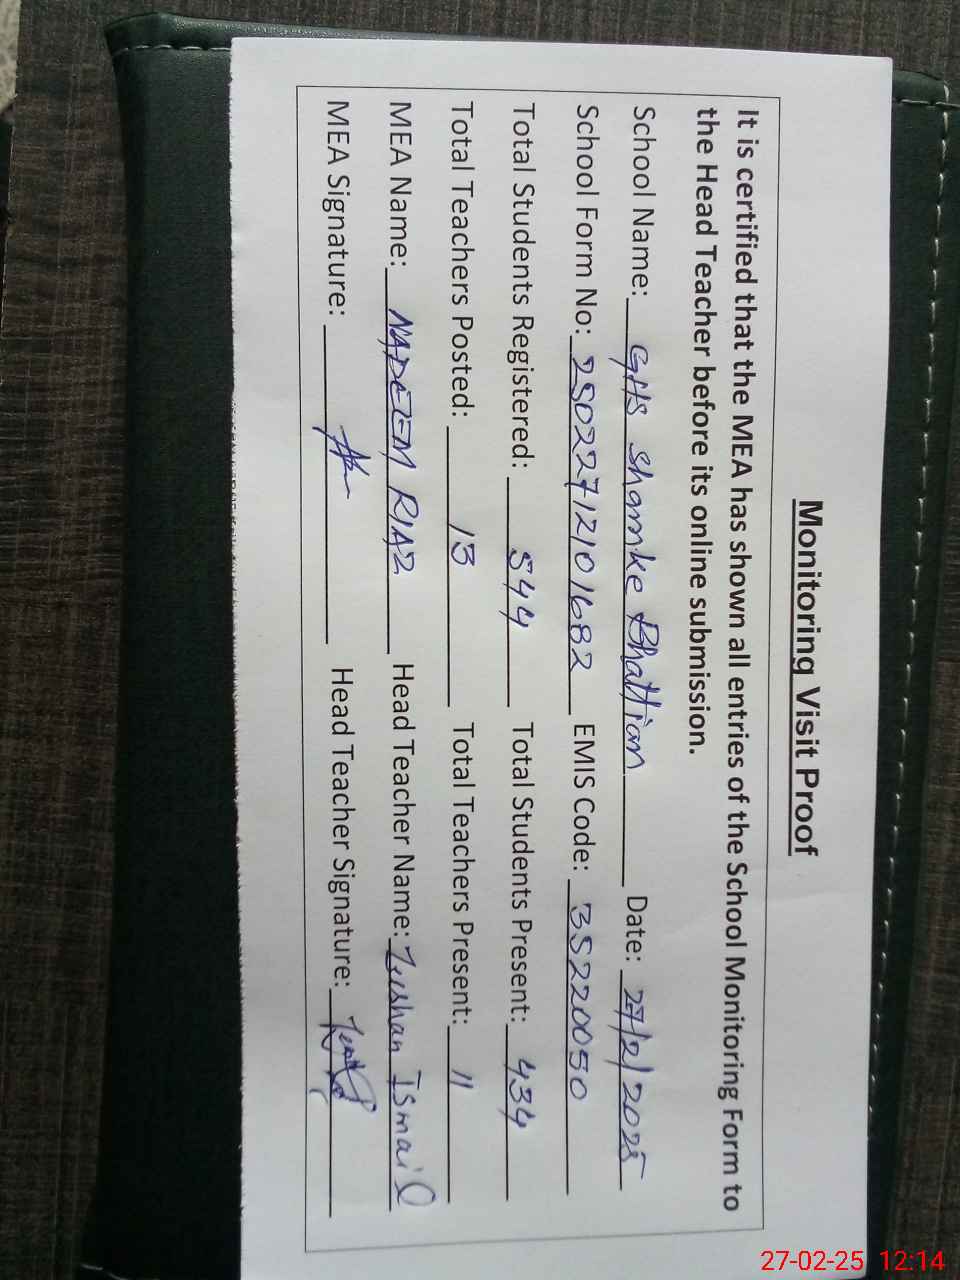 Monitoring Visit Proof
It is certified that the MEA has shown all entries of the School Monitoring Form to
the Head Teacher before its online submission.
School Name: GHS Shamke Bhattian Date: 27/2/2025
School Form No: 25022712101682 EMIS Code: 35220050
Total Students Registered: 544 Total Students Present: 434
Total Teachers Posted: 13 Total Teachers Present: 11
MEA Name: NADEEM RIAZ Head Teacher Name: Zeeshan Ismail
MEA Signature: Head Teacher Signature:
27-02-25 12:14